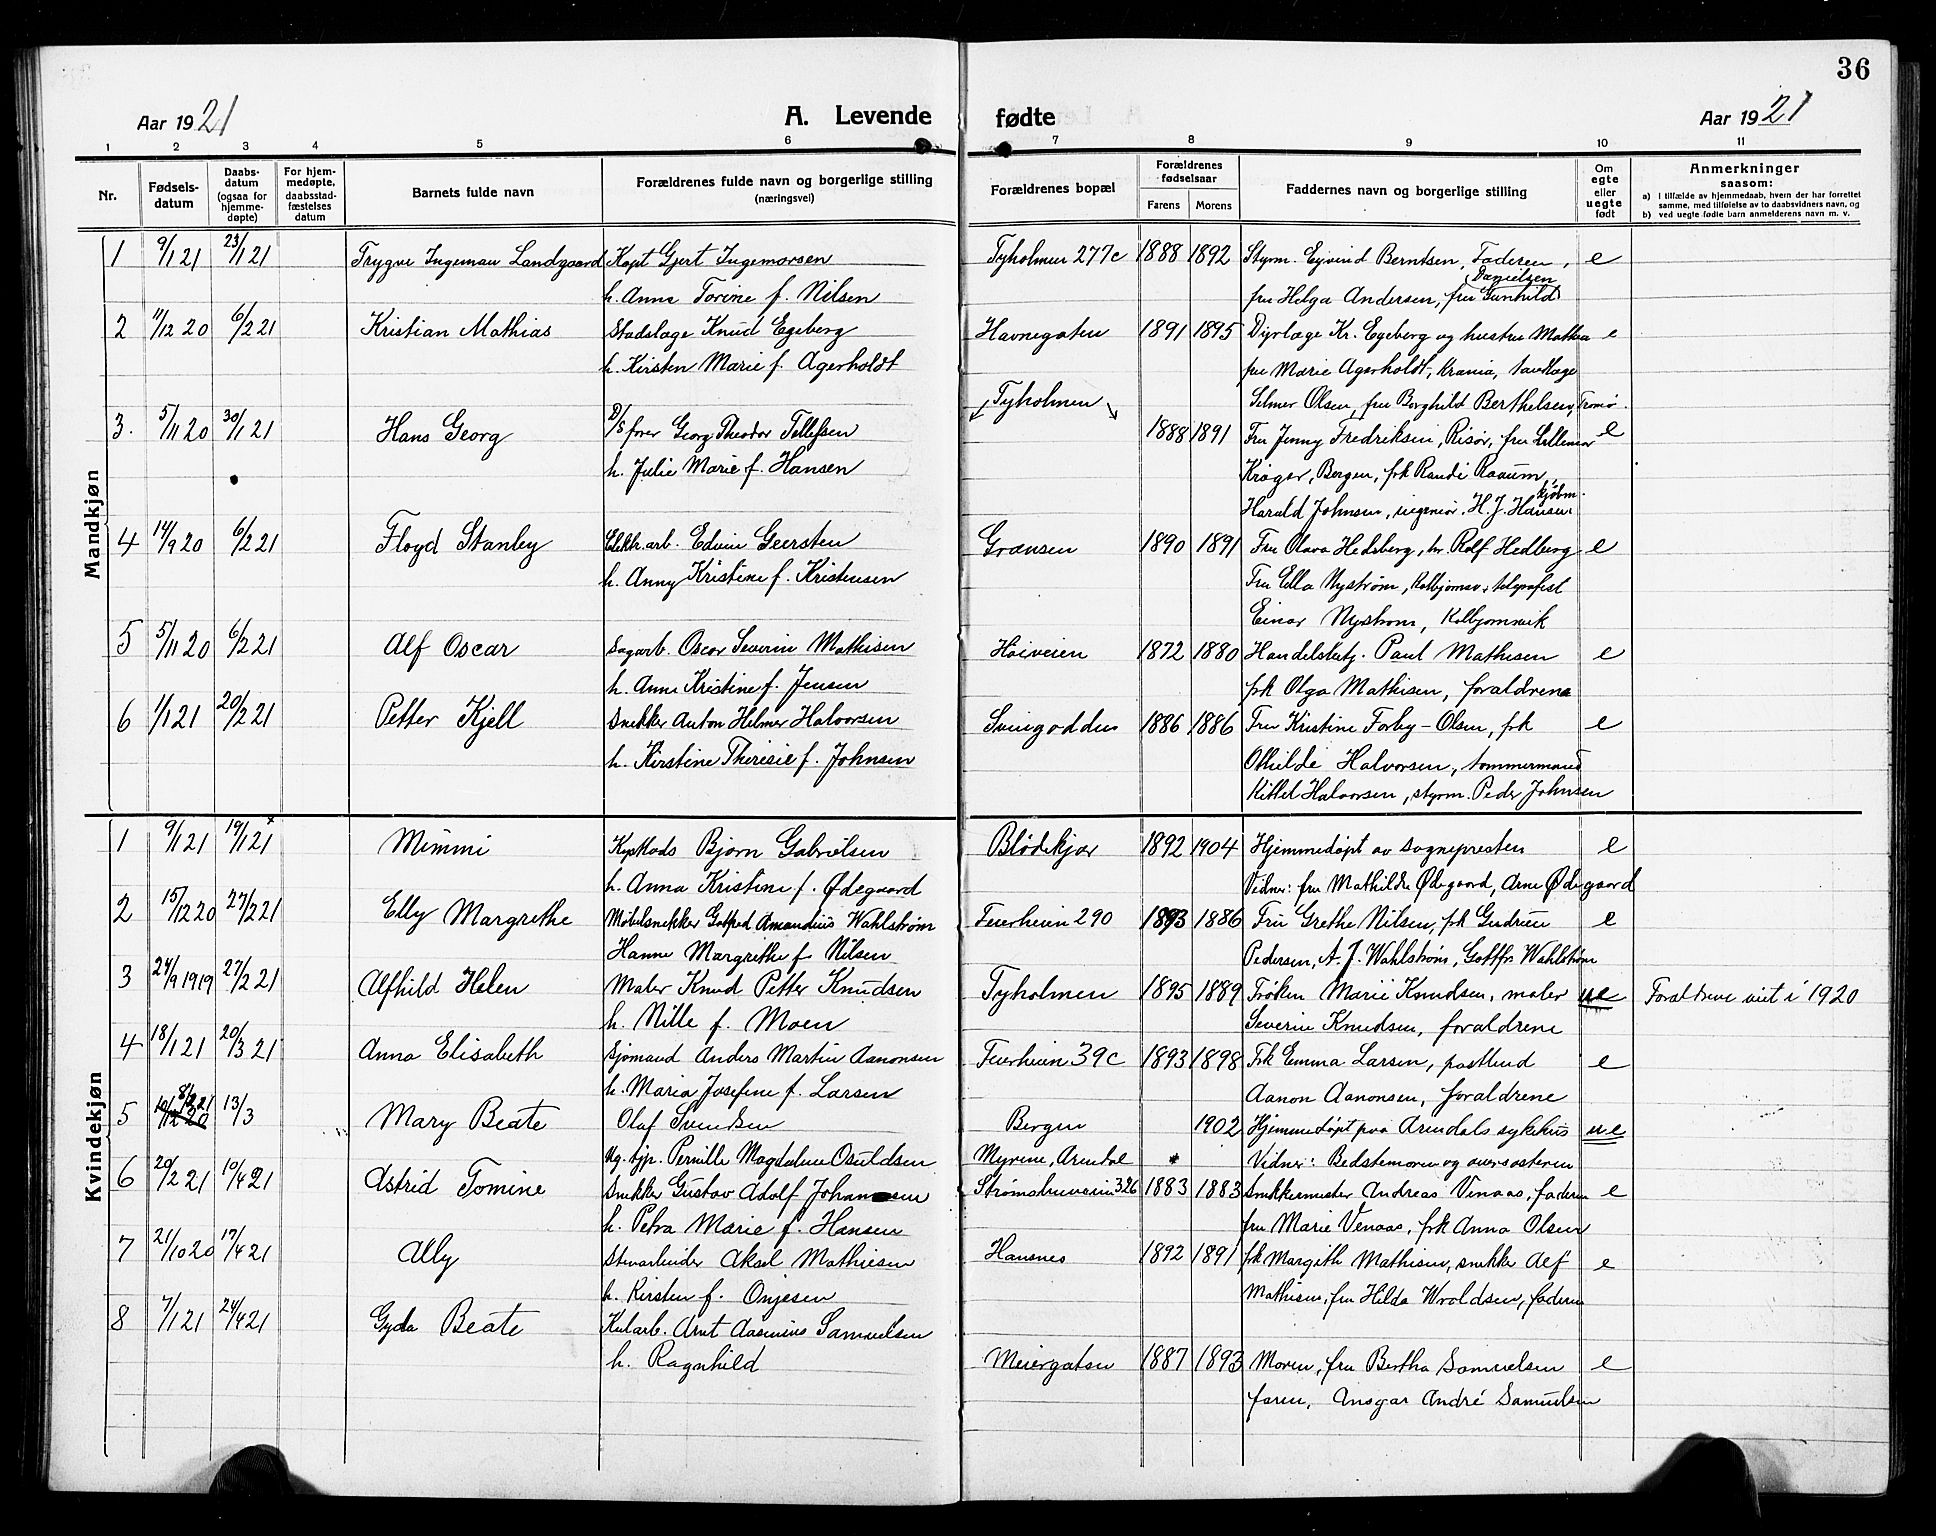 36
Aar 1921
A. Levende fødte
Aar 1921
1 2 3 4 5 6 7 8 9 10 11
Nr.
Fødsels-datum
Daabs-datum (ogsaa for hjemme-døpte)
For hjem-medøpte, daabsstad-fæstelses datum
Barnets fulde navn
Forældrenes fulde navn og borgerlige stilling (næringsvei)
Forældrenes bopæl
Forældrenes fødselsaar
Farens Morens
Faddernes navn og borgerlige stilling
Om egte eller uegte født
Anmerkninger saasom:
a) I tilfælde av hjemmedaab, hvem der har forrettet samme, med tilføielse av to daabsvidners navn, og
b) ved uegte fødte barn anmelderens navn m. v.
Mandkjøn
1 9/1 21 23/1 21 Trygve Ingeman Landgaard Kapt Gjert Ingemorsen Tyholmen 277c 1888 1892 Styrm. Ejvind Berntsen, Faderen, e
h. Anna Torine f. Nilsen fru Helga Andersen, fru Gunhild Danielsen
2 11/12 20 6/2 21 Kristian Mathias Stadslæge Knud Egeberg Havnegaten 1891 1895 Dyrlæge Kr. Egeberg og hustru Mathea e
h. Kirsten Marie f. Agerholdt fru Marie Agerholdt, Krania, tandlæge
Tyholmen Selmer Olsen, fru Borghild Berthelsen, Tromø.
3. 5/11 20 30/1 21 Hans Georg D/S fører Georg Theodor Tellefsen 1888 1891 Fru Jenny Fredriksen, Risør, fru Lillemor e
h. Julie Marie f. Hansen Krøger, Bergen, frk Randi Raaum,
Harald Johnsen, ingeniør, H. J. Hansen kjøbm.
4 14/9 20 6/2 21 Floyd Stanley Elektr. arb. Edvin Geersten Grænsen 1890 1891 Fru Olava Hedberg, hr Rolf Hedberg e
h. Anny Kristine f. Kristensen Fru Ella Nystrøm, Kolbjørnsv., telegrafist
Einar Nystrøm, Kolbjørnsvik
5 5/11 20 6/2 21 Alf Oscar Sagarb. Oscar Severin Mathisen Høiveien 1872 1880 Handelsbetj. Paul Mathisen e
h. Anna Kristine f. Jensen frk Olga Mathisen, forældrene
6 1/1 21 20/2 21 Petter Kjell Snekker Anton Helmer Halvorsen Svingodden 1886 1886 Fru Kristine Forby-Olsen, frk e
h. Kirstine Theresie f. Johnsen Othilde Halvorsen, tømmermand
Kittel Halvorsen, styrm. Peder Johnsen
Kvindekjøn
1 9/1 21 19/1 21 x Mimmi Bjørn Gabrielsen Blødekjær 1892 1904 Hjemmedøpt av sognepresten e
h. Anna Kristine f. Ødegaard Vidner: fru Mathilde Ødegaard, Arne Ødegaard
2 15/12 20 27/2 21 Elly Margrethe Møbelsnekker Gotfred Amandius Wahlstrøm Feierheien 290 1893 1886 Fru Grethe Nilsen, frk Gudrun e
Hanne Margrethe f. Nilsen Pedersen, A. J. Wahlstrøm, Gottfr Wahlstrøm
3 24/9 1919 27/2 21 Alfhild Helen Maler Knud Petter Knudsen Tyholmen 1895 1889 Frøken Marie Knudsen, maler ue Forældrene viet i 1920
h. Nille f. Moen Severin Knudsen, forældrene
4 18/1 21 20/3 21 Anna Elisabeth Sjømand Anders Martin Aanonsen Feierheien 39c 1893 1898 Frk Emma Larsen, postbud e
h. Maria Josefine f. Larsen Aanon Aanonsen, forældrene
5 8/2 21 13/3 Mary Beate Olaf Svendsen Bergen 1902 Hjemmedøpt paa Arendals sykehus ue
Ug. tjp. Pernille Magdalene Osuldsen Myrene, Arendal Vidner: Bedstemoren og oversøsteren
6 20/2 21 10/4 21 Astrid Tomine Snekker Gustav Adolf Johansen Strømsbuveien 326 1883 1883 Snekkermester Andreas Venaas, faderen e
h. Petra Marie f. Hansen fru Marie Venaas, frk Anna Olsen
7 21/10 20 17/4 21 Ally Stenarbeider Aksel Mathiesen Hansnes 1892 1891 frk Margith Mathisen, snekker Alf e
h. Kirsten f. Onjesen Mathisen, fru Hilda Wroldsen, faderen
8 7/1 21 24/4 21 Gyda Beate Kularb. Arnt Aasmius Samuelsen
h. Ragnhild Meiergaten 1887 1893 Moren, fru Bertha Samuelsen e
faren, Ansgar André Samuelsen